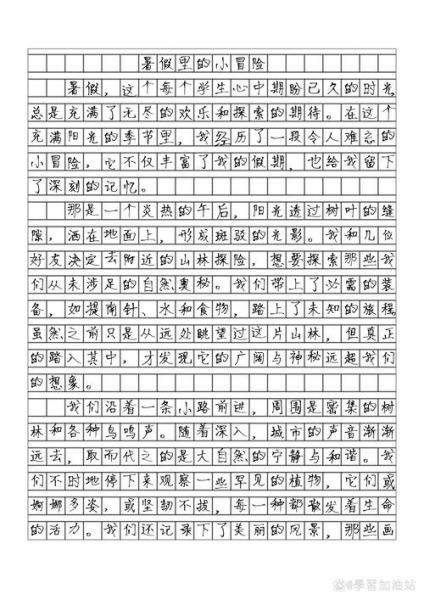 暑假里的小冒险
暑假，这个每个学生心中期盼已久的时光，
总是充满了无尽的欢乐和探索的期待。在这个
充满阳光的季节里，我经历了一段令人难忘的
小冒险，它不仅丰富了我的假期，也给我留下
了深刻的记忆。
那是一个炎热的午后，阳光透过树叶的缝
隙，洒在地面上，形成斑驳的光影。我和几位
好友决定去附近的山林探险，想要探索那些我
们从未涉足的自然奥秘。我们带上了必需的装
备，如指南针、水和食物，踏上了未知的旅程
虽然之前只是从远处眺望过这片山林，但真正
的踏入其中，才发现它的广阔与神秘远超我们
的想象。
我们沿着一条小路前进，周围是密集的树
林和各种鸟鸣声。随着深入，城市的声音渐渐
远去，取而代之的是大自然的宁静与和谐。我
们不时地停下来观察一些罕见的植物，它们或
婀娜多姿，或坚韧不拔，每一种都散发着生命
的活力。我们还记录下了美丽的风景，那些画
@學習加油站